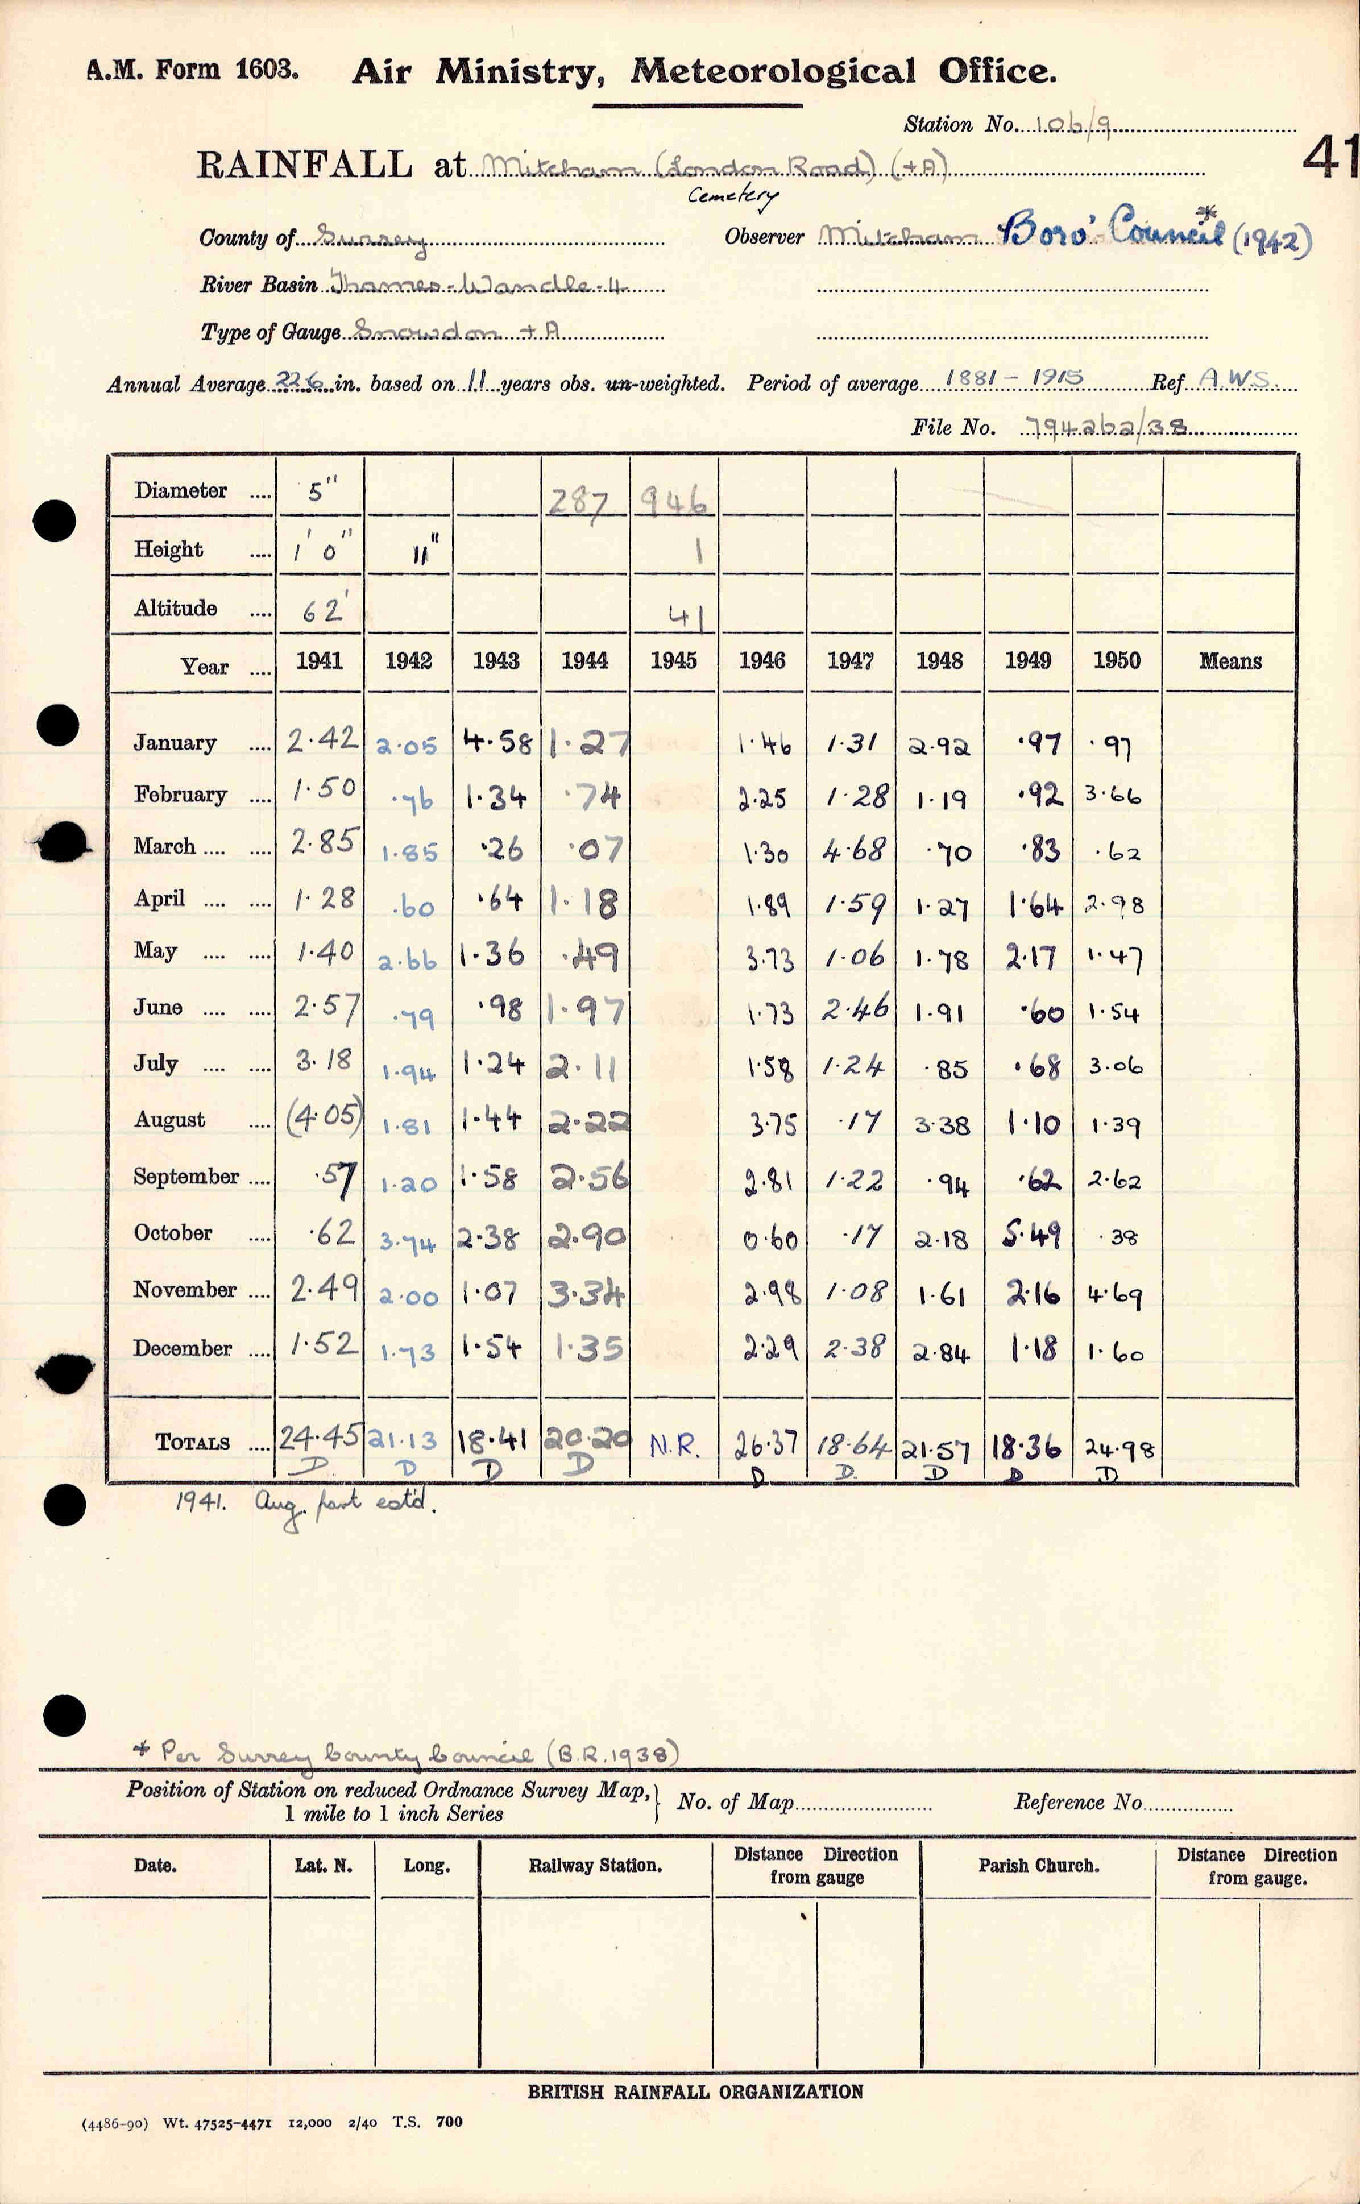 A.M. Form 1603. Air Ministry, Meteorological Office.
Station No. 106/9
41
RAINFALL at Mitcham (London Road) (+A)
Cemetery
County of Surrey Observer Mitcham Boro' Council * (1942)
River Basin Thames-Wandle-4
Type of Gauge Snowdon +A
Annual Average 22.6 in. based on 11 years obs. un-weighted. Period of average 1881-1915 Ref A.W.S.
File No. 794262/38
Diameter .... 5" 287 946
Height .... 1' 0" 11" 1
Altitude .... 62' 41
Year .... 1941 1942 1943 1944 1945 1946 1947 1948 1949 1950 Means
January .... 2.42 2.05 4.58 1.27 1.46 1.31 2.92 .97 .97
February .... 1.50 .76 1.34 .74 2.25 1.28 1.19 .92 3.66
March .... .... 2.85 1.85 .26 .07 1.30 4.68 .70 .83 .62
April .... .... 1.28 .60 .64 1.18 1.89 1.59 1.27 1.64 2.98
May .... .... 1.40 2.66 1.36 .49 3.73 1.06 1.78 2.17 1.47
June .... .... 2.57 .79 .98 1.97 1.73 2.46 1.91 .60 1.54
July .... .... 3.18 1.94 1.24 2.11 1.58 1.24 .85 .68 3.06
August .... (4.05) 1.81 1.44 2.22 3.75 .17 3.38 1.10 1.39
September .... .57 1.20 1.58 2.56 2.81 1.22 .94 .62 2.62
October .... .62 3.74 2.38 2.90 0.60 .17 2.18 5.49 .38
November .... 2.49 2.00 1.07 3.34 2.98 1.08 1.61 2.16 4.69
December .... 1.52 1.73 1.54 1.35 2.29 2.38 2.84 1.18 1.60
TOTALS .... 24.45 21.13 18.41 20.20 N.R. 26.37 18.64 21.57 18.36 24.98
D D D D D D D D D
1941. Aug. part est'd.
* Per Surrey County Council (B.R. 1938)
Position of Station on reduced Ordnance Survey Map, } No. of Map Reference No.
1 mile to 1 inch Series
Date. Lat. N. Long. Railway Station. Distance Direction from gauge Parish Church. Distance Direction from gauge.
BRITISH RAINFALL ORGANIZATION
(4486-90) Wt. 47525-4471 12,000 2/40 T.S. 700